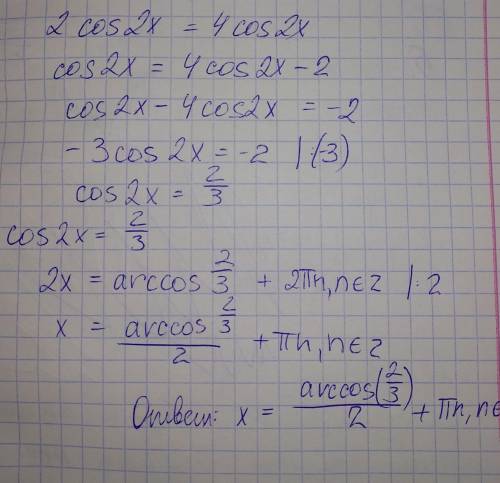 2 cos2x = 4cos2x
cos2x = 4cos2x - 2
cos2x - 4cos2x = -2
- 3cos2x = -2 |:(-3)
cos2x = 2/3
cos2x = 2/3
2x = arccos 2/3 + 2πn, n∈z |:2
x = arccos 2/3 / 2 + πn, n∈z
Ответ: x = arccos(2/3) / 2 + πn, n∈